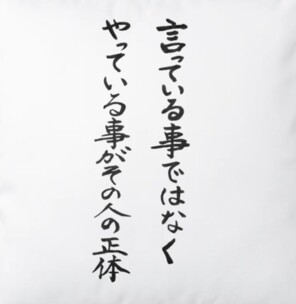 言っている事ではなく
やっている事がその人の正体